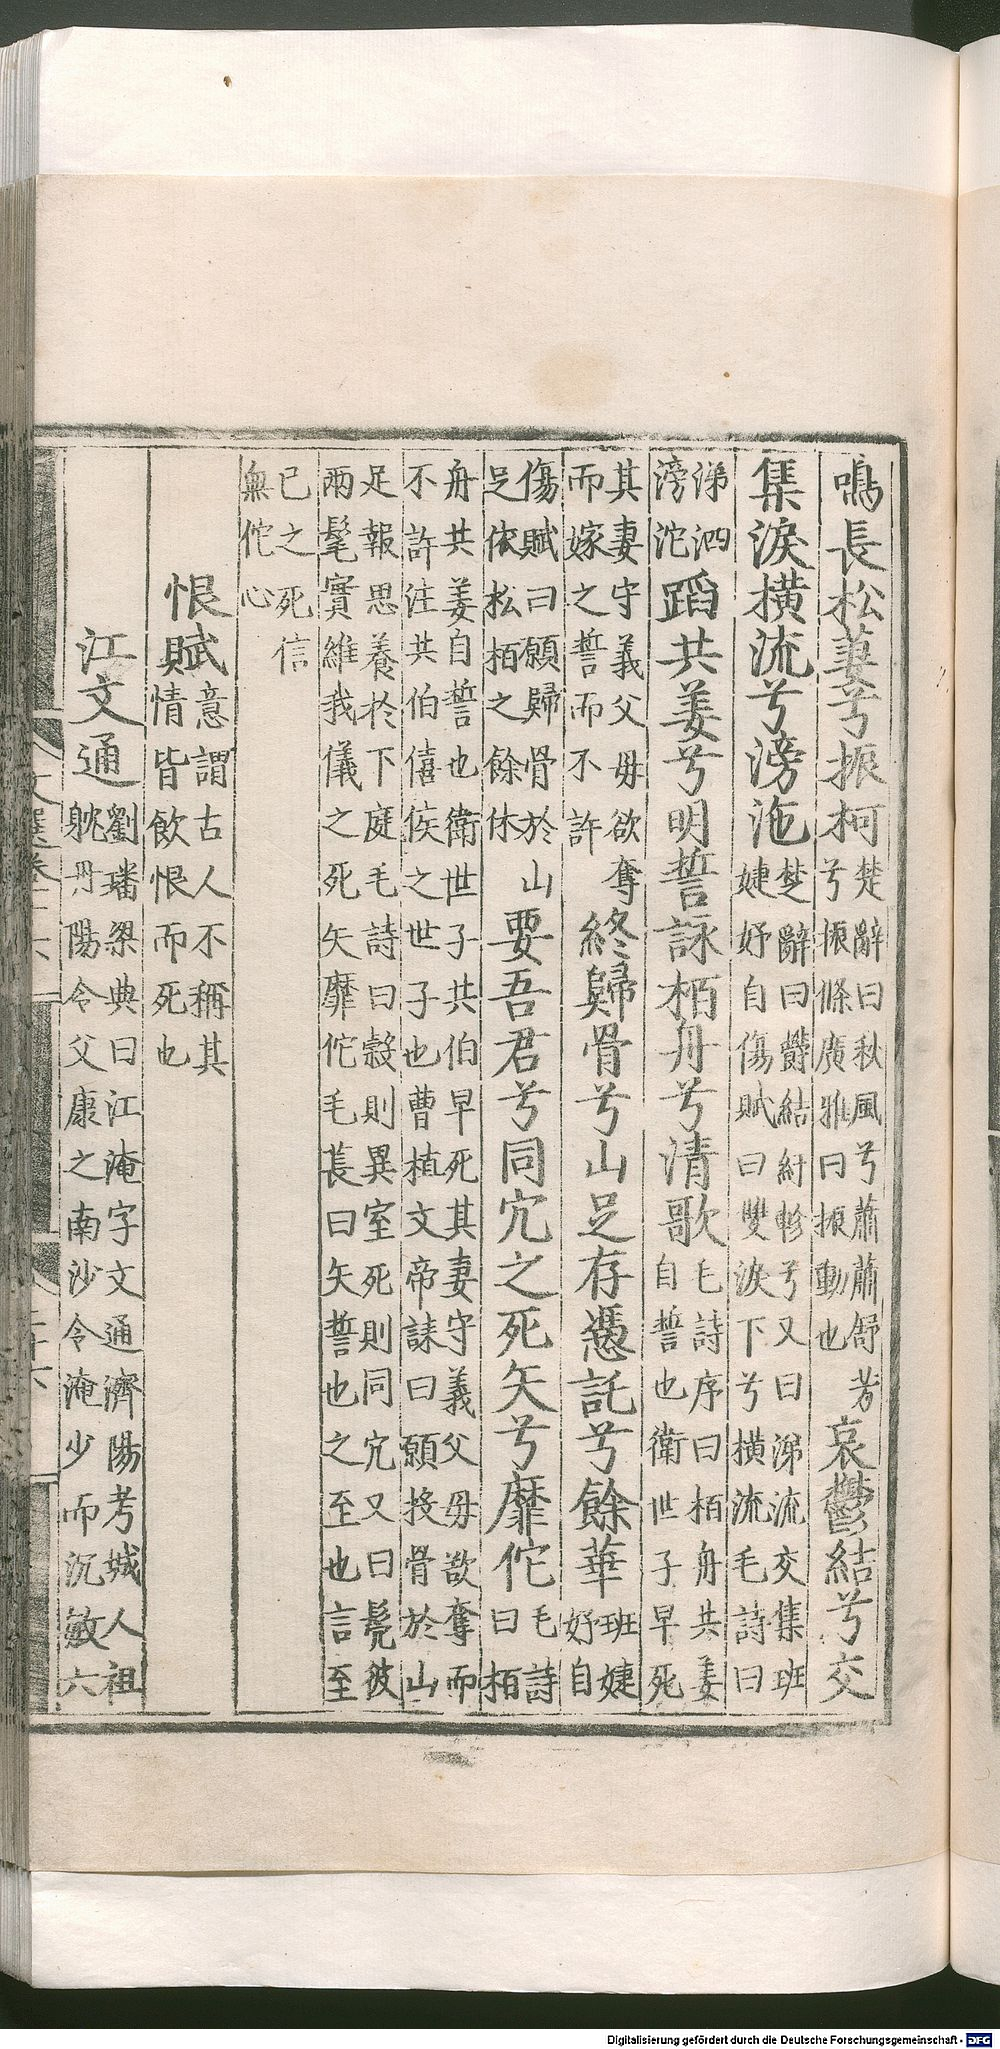 鳴長松萋兮振柯楚辭曰秋風兮蕭蕭舒芳兮振條廣雅曰振動也哀鬱結兮交
集淚橫流兮滂沲楚辭曰欝結紆軫兮又曰涕流交集班婕妤自傷賦曰雙淚下兮橫流毛詩曰
涕泗滂沱蹈共姜兮明誓詠栢舟兮清歌毛詩序曰栢舟共姜自誓也衛世子早死
其妻守義父母欲奪而嫁之誓而不許終歸骨兮山足存憑託兮餘華班婕妤自
傷賦曰願歸骨於山足依松栢之餘休要吾君兮同穴之死矢兮靡佗毛詩曰栢
舟共姜自誓也衛世子共伯早死其妻守義父母欲奪而不許注共伯僖侯之世子也曹植文帝誄曰願投骨於山
足報恩養於下庭毛詩曰穀則異室死則同穴又曰髧彼兩髦實維我儀之死矢靡佗毛萇曰矢誓也之至也言至
已之死信無佗心
恨賦意謂古人不稱其情皆飲恨而死也
江文通劉璠梁典曰江淹字文通濟陽考城人祖躭丹陽令父康之南沙令淹少而沉敏六
Digitalisierung gefördert durch die Deutsche Forschungsgemeinschaft - DFG